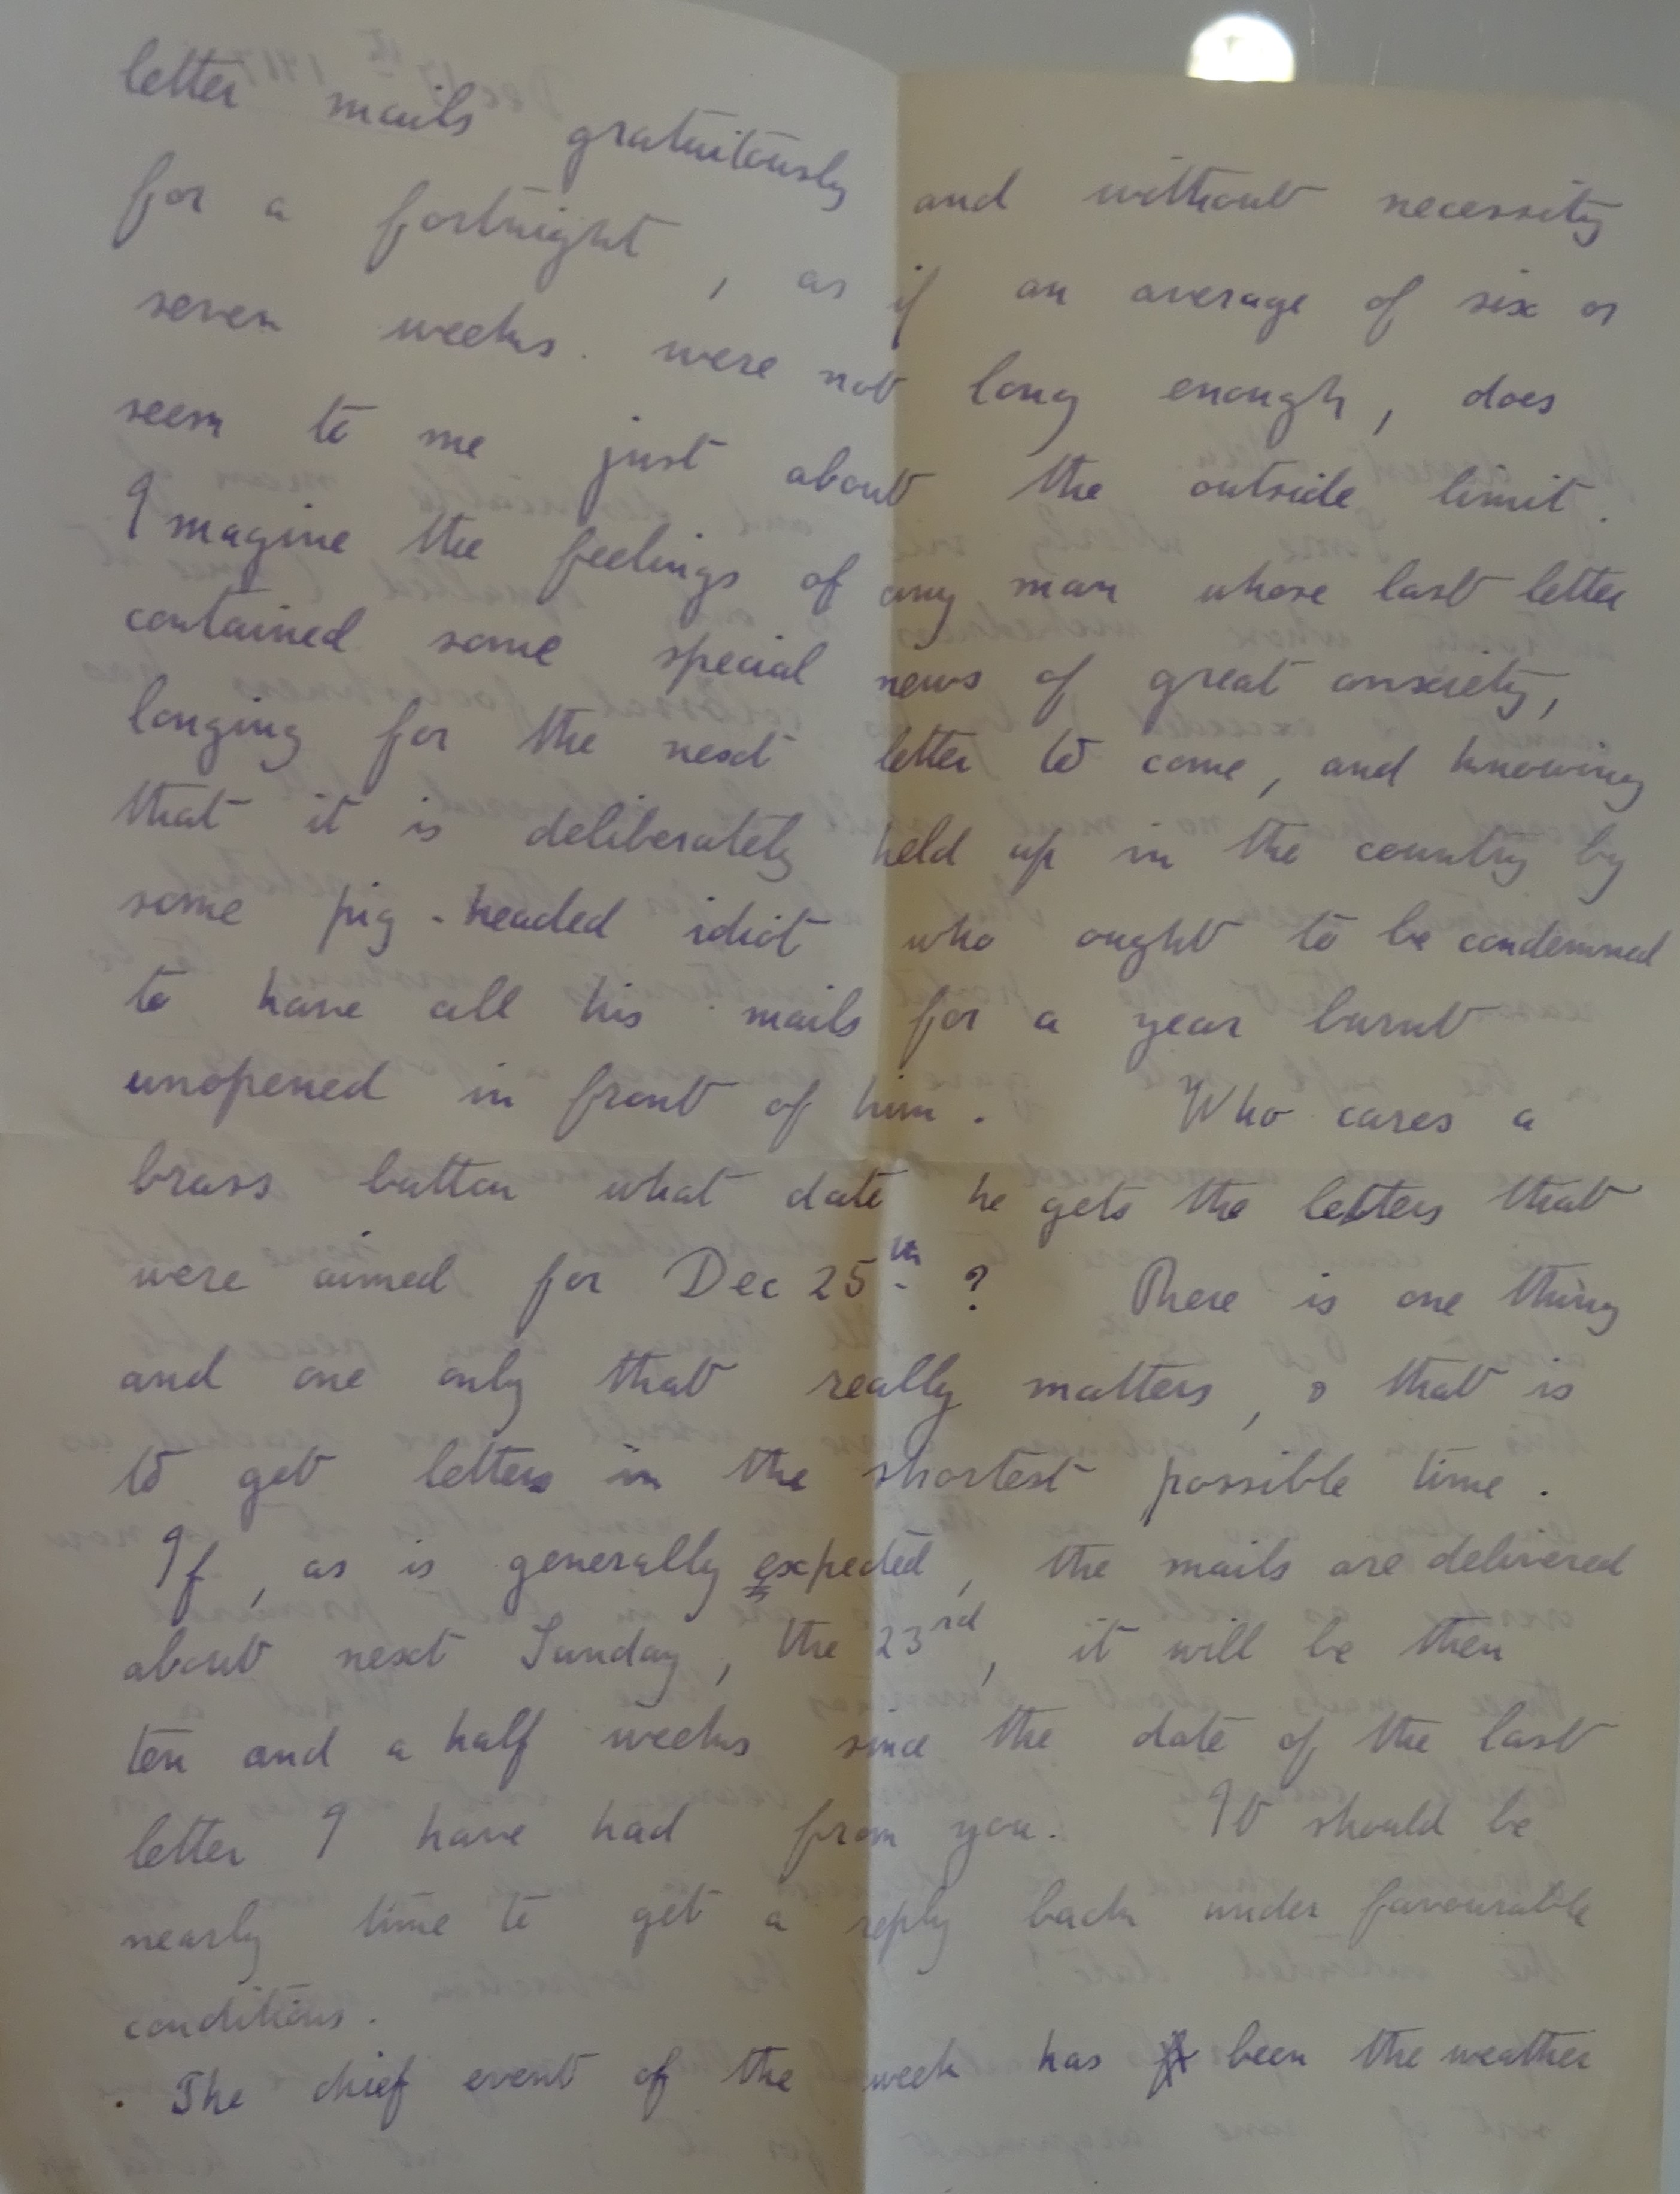 letter mails gratuitously and without necessity
for a fortnight, as if an average of six or
seven weeks were not long enough, does
seem to me just about the outside limit.
Imagine the feelings of any man whose last letter
contained some special news of great anxiety,
longing for the next letter to come, and knowing
that it is deliberately held up in the country by
some pig-headed idiot who ought to be condemned
to have all his mails for a year burnt
unopened in front of him. Who cares a
brass button what date he gets the letters that
were aimed for Dec 25th ? There is one thing
and one only that really matters, & that is
to get letters in the shortest possible time.
If, as is generally expected, the mails are delivered
about next Sunday, the 23rd, it will be then
ten and a half weeks since the date of the last
letter I have had from you. It should be
nearly time to get a reply back under favourable
conditions.
The chief event of the week has been the weather